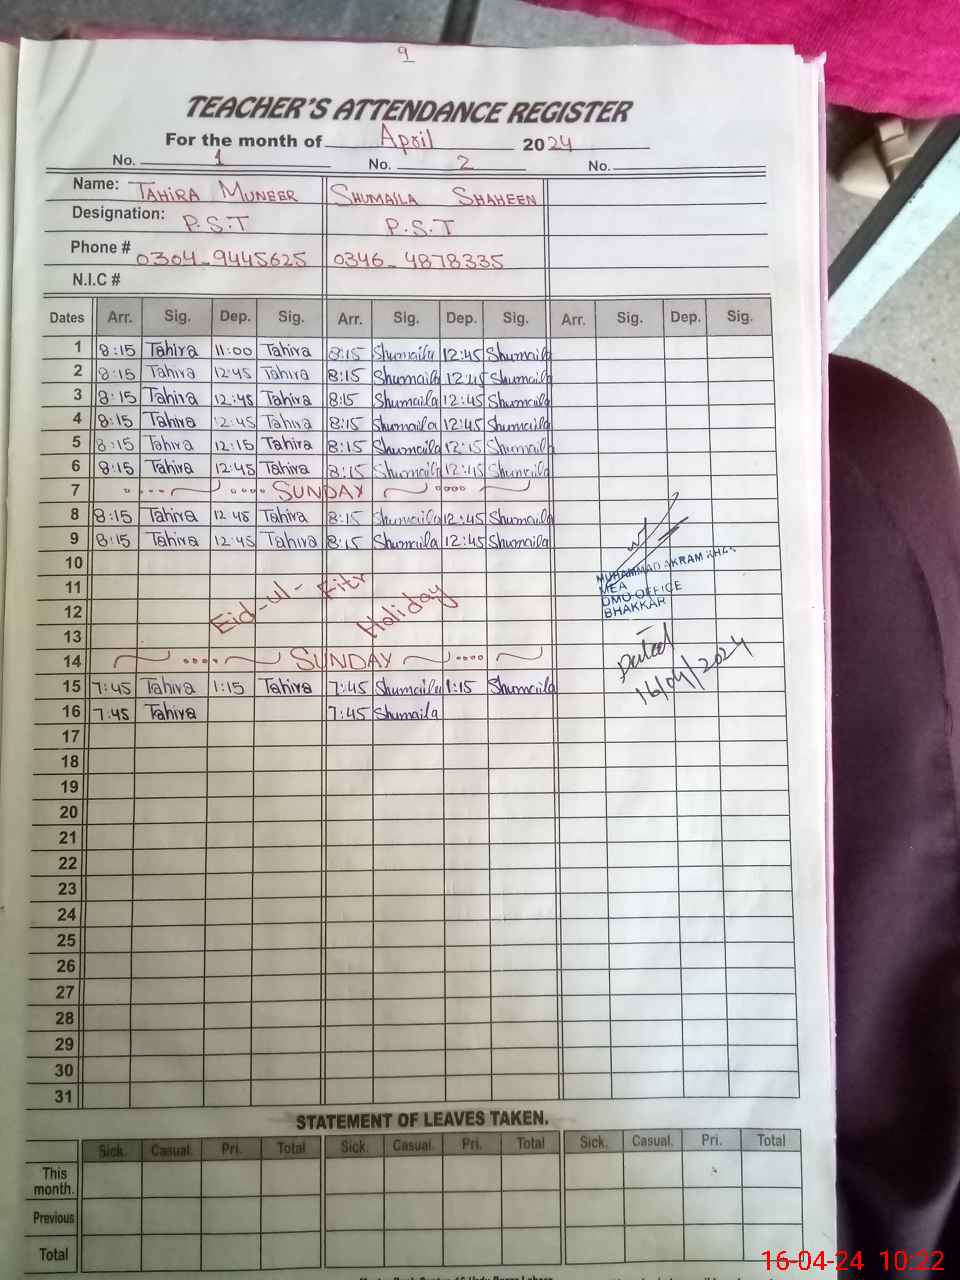 9
TEACHER'S ATTENDANCE REGISTER
For the month of April 2024
No. 1 No. 2 No.
Name: TAHIRA MUNEER SHUMAILA SHAHEEN
Designation: P.S.T P.S.T
Phone # 0304-9445625 0346-4878335
N.I.C #
Dates Arr. Sig. Dep. Sig. Arr. Sig. Dep. Sig. Arr. Sig. Dep. Sig.
1 8:15 Tahira 11:00 Tahira 8:15 Shumaila 12:45 Shumaila
2 8:15 Tahira 12:45 Tahira 8:15 Shumaila 12:45 Shumaila
3 8:15 Tahira 12:45 Tahira 8:15 Shumaila 12:45 Shumaila
4 8:15 Tahira 12:45 Tahira 8:15 Shumaila 12:45 Shumaila
5 8:15 Tahira 12:15 Tahira 8:15 Shumaila 12:15 Shumaila
6 8:15 Tahira 12:45 Tahira 8:15 Shumaila 12:45 Shumaila
7 SUNDAY
8 8:15 Tahira 12:45 Tahira 8:15 Shumaila 12:45 Shumaila
9 8:15 Tahira 12:45 Tahira 8:15 Shumaila 12:45 Shumaila
10
11 Eid-ul-Fitr
12 Holiday
13
MUHAMMAD AKRAM KHAN
MEA
DMO OFFICE
BHAKKAR
Dated
16/04/2024
14 SUNDAY
15 7:45 Tahira 1:15 Tahira 7:45 Shumaila 1:15 Shumaila
16 7:45 Tahira 7:45 Shumaila
17
18
19
20
21
22
23
24
25
26
27
28
29
30
31
STATEMENT OF LEAVES TAKEN.
Sick. Casual. Pri. Total Sick. Casual. Pri. Total Sick. Casual. Pri. Total
This month.
Previous
Total
16-04-24 10:22